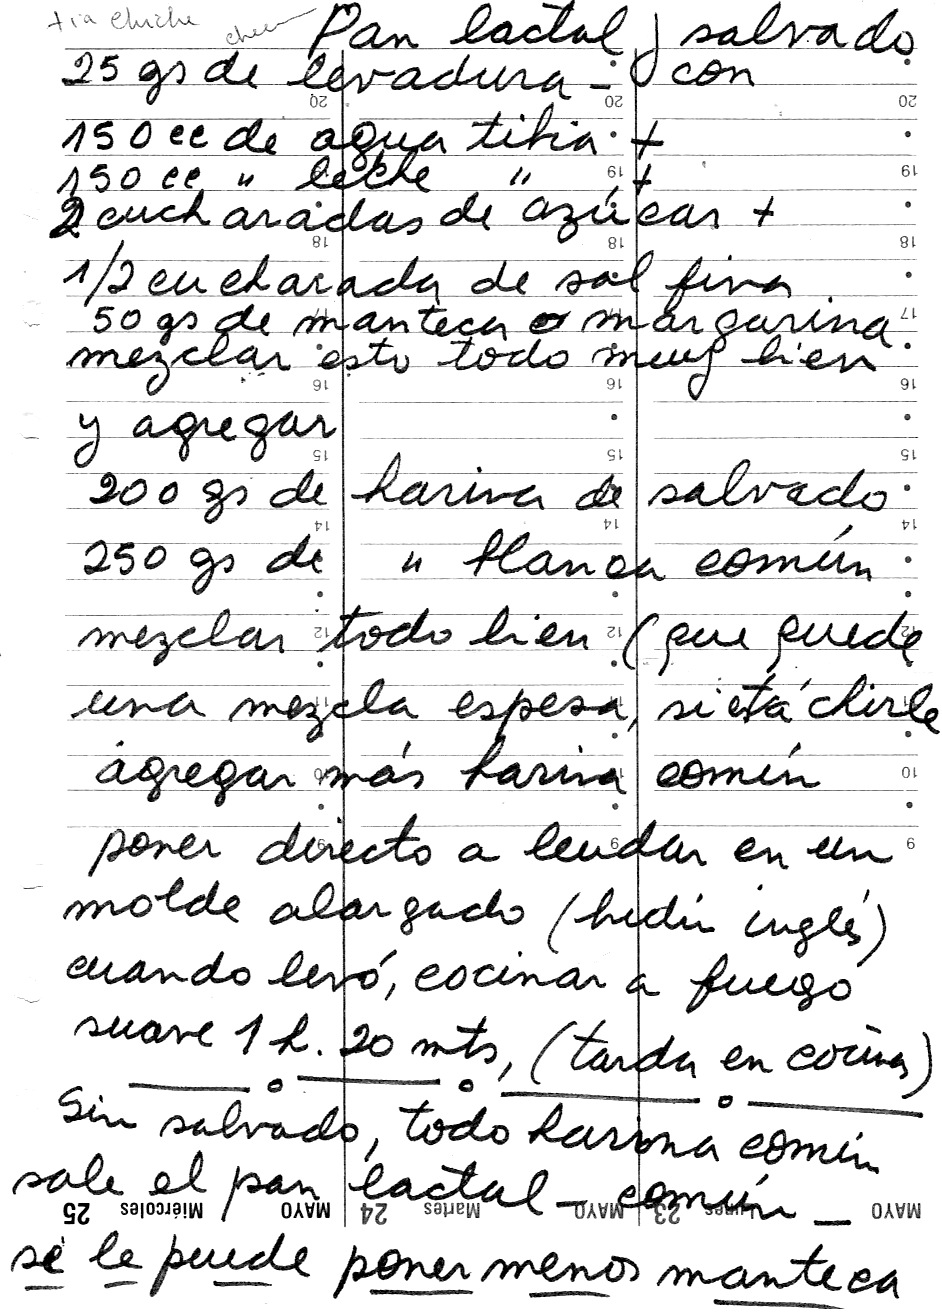 tia chiche
Pan lactal salvado
25 gs de levadura - con
150 cc de agua tibia +
150 cc " leche " +
2 cucharadas de azúcar +
1/2 cucharada de sal fina
50 gs de manteca o margarina
mezclar esto todo muy bien
y agregar
200 gs de harina de salvado
250 gs de " blanca común
mezclar todo bien (que quede
una mezcla espesa, si etá chirle
agregar más harina común
poner directo a leudar en un
molde alargado (budín inglés)
cuando levó, cocinar a fuego
suave 1 h. 20 mts, (tarda en cocinar)
Sin salvado, todo harina común
sale el pan lactal - común -
25 Miércoles MAYO 24 Martes MAYO 23 Lunes MAYO
se le puede poner menos manteca